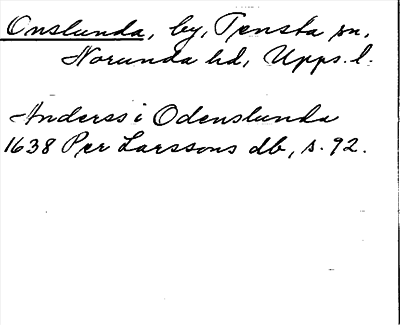 Onslunda, by, Tensta sn,
Norunda hd, Upps. l.
Anderss i Odenslunda
1638 Per Larssons db, s. 92.